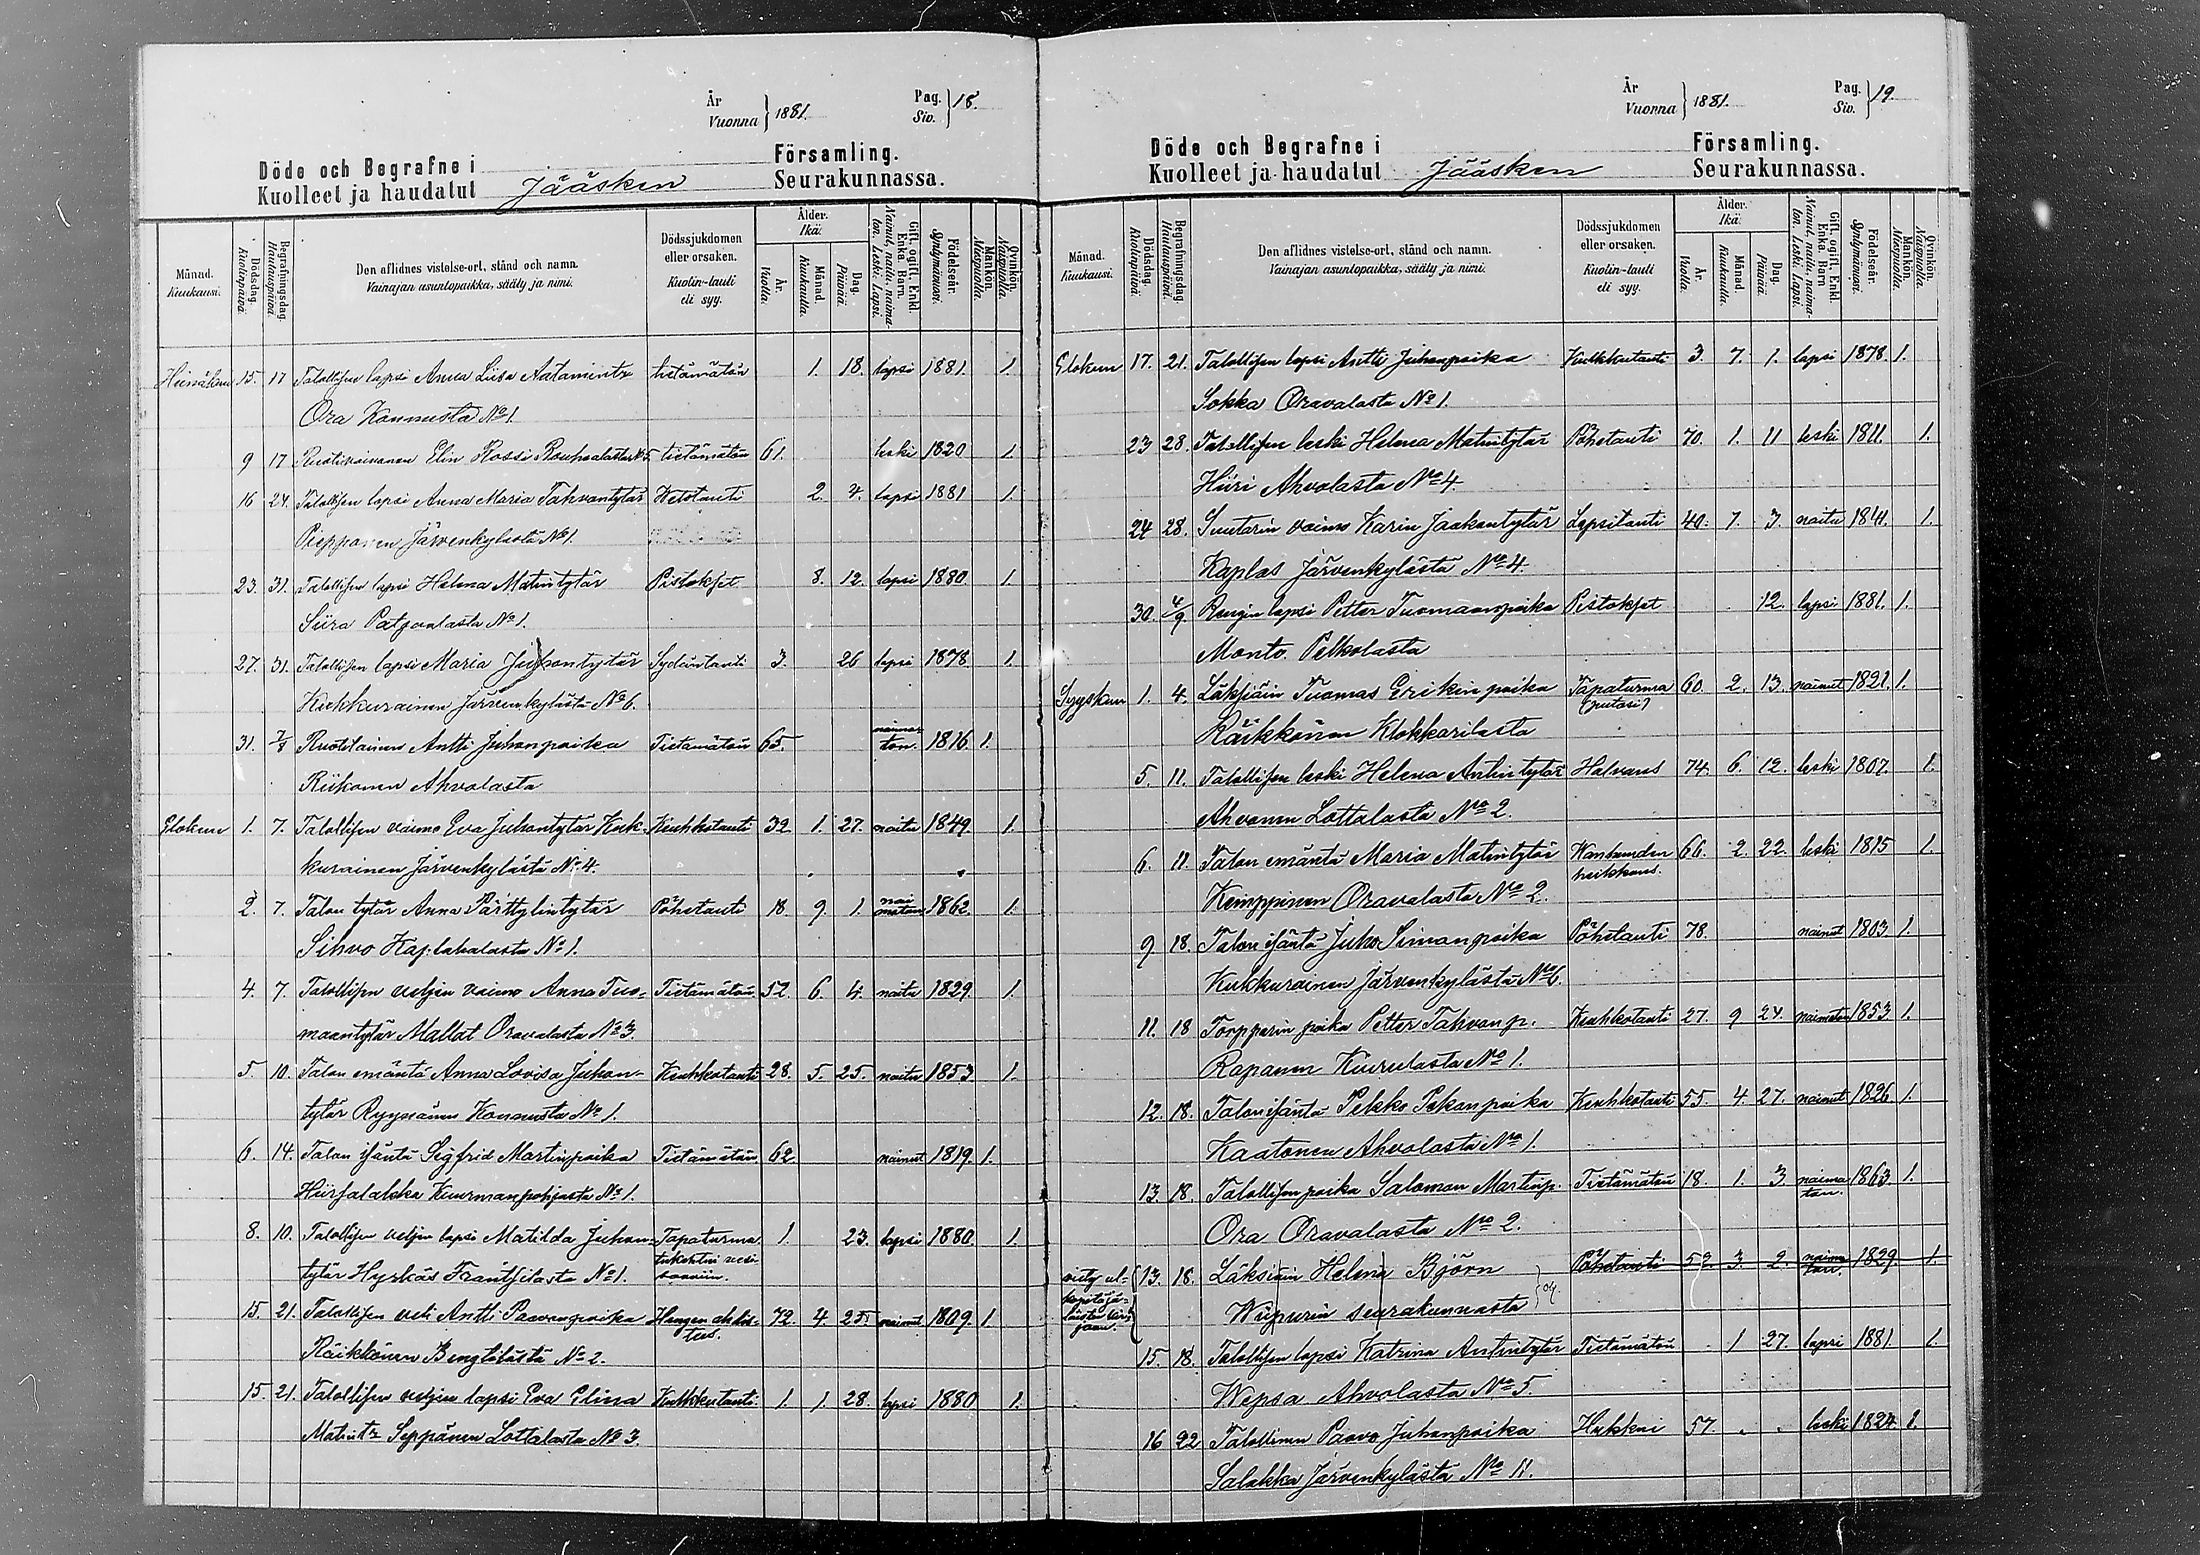 År
Vuonna } 1881.
Pag.
Siv. } 18.
Döde och Begrafne i
Kuolleet ja haudatut
Jääsken
Församling.
Seurakunnassa.
Månad.
Kuukausi.
Dödsdag.
Kuolinpäivä.
Begrafningsdag.
Hautauspäivä.
Den aflidnes vistelse-ort, stånd och namn.
Vainajan asuntopaikka, sääty ja nimi.
Dödssjukdomen
eller orsaken.
Kuolin-tauti
eli syy.
Ålder.
Ikä:
År.
Vuotta.
Månad.
Kuukautta.
Dag.
Päiviä.
Gift, ogift, Enkl.
Enka. Barn.
Nainut, naitu, naima-
ton. Leski. Lapsi.
Födelseår.
Syntymävuosi.
Mankön.
Miespuolia.
Qvinkön.
Naispuolia.
Heinäkuu 15. 17 Talollisen lapsi Anna Liisa Aatamintr tietämätön 1. 18. lapsi 1881. 1.
Ora Kannusta No 1.
9 17 Ruotivaivanen Elin Rossi Rouhialasta No 5. tietämätön 61. leski 1820 1.
16 24. Talollisen lapsi Anna Maria Tahvantytär 2. 7. lapsi 1881 1.
Pieppanen Järvenkylästä No 1.
23. 31. Talollisen lapsi Helena Matintytär Pistokset 8. 12. lapsi 1880 1.
Siira No 1.
27. 31. Talollisen lapsi Maria Juhontytär Sydäntauti 3. 26 lapsi 1878 1.
Kukkurainen Järvenkylästä No 6.
31. 7/8 Antti Juhonpoika Tietämätön 65. naima-
ton. 1816 1.
Riikonen Ahvolasta
Elokuu 1. 7. Talollisen vaimo Eva Juhontytär Kuk- Keuhkotauti 32 1. 27. naitu 1849. 1.
kurainen Järvenkylästä No 4.
2. 7. Talon tytär Anna Pärttylintytär Pöhetauti 18 9. 1. nai
maton 1862. 1.
Sihvo No 1.
4. 7. Talollisen veljen vaimo Anna Tuo- Tietämätön 52. 6. 4. naitu 1829. 1.
maantytär Mallat Oravalasta No 3.
5. 10. Talon emäntä Anna Lovisa Juhon- Keuhkotauti 28. 5. 25. naitu 1853 1.
tytär Ryynänen Kannusta No 1.
6. 14. Talon isäntä Sigfrid Martinpoika Tietämätön 62. nainut 1819. 1.
Kuurmanpohjasta No 1.
8. 10. Talollisen veljen lapsi Matilda Juhon- Tapaturma 1. 23. lapsi 1880. 1.
tukehtui vesi-
saaviin.
tytär Hyrkäs Frantsilasta No 1.
15. 21. Talollisen veli Antti Paavonpoika Hengen ahdis-
tus. 72. 4 25. nainut 1809. 1
Räikkönen Bengtilästä No 2.
15. 21. Talollisen veljen lapsi Eva Elina Kurkkutauti 1. 1. 28. lapsi 1880 1.
Matintr Seppänen Lottalasta No 3.
År
Vuonna } 1881.
Pag.
Siv. } 19.
Döde och Begrafne i
Kuolleet ja haudatut
Jääsken
Församling.
Seurakunnassa.
Månad.
Kuukausi.
Dödsdag.
Kuolinpäivä.
Begrafningsdag.
Hautauspäivä.
Den aflidnes vistelse-ort, stånd och namn.
Vainajan asuntopaikka, sääty ja nimi.
Dödssjukdomen
eller orsaken.
Kuolin-tauti
eli syy.
Ålder.
Ikä:
År.
Vuotta.
Månad.
Kuukautta.
Dag.
Päiviä.
Gift, ogift, Enkl.
Enka. Barn
Nainut, naitu, naima-
ton. Leski. Lapsi.
Födelseår.
Syntymävuosi.
Mankön.
Miespuolia.
Qvinkön.
Naispuolia.
Elokuu 17. 21. Talollisen lapsi Antti Juhonpoika Kurkkutauti 3. 7. 1. lapsi 1878. 1.
Sokka Oravalasta No 1.
23 28. Talollisen leski Helena Matintytär Pöhetauti 70. 1. 11 leski 1811. 1.
Hiiri Ahvolasta No 4.
24 28. Suutarin vaimo Karin Jaakontytär Lapsitauti 40. 7. 3. naitu 1841. 1.
Kaplas Järvenkylästä No 4.
30. 4/9 Rengin lapsi Petter Tuomaanpoika Pistokset 12. lapsi 1881. 1.
Monto Pelkolasta
Syyskuu 1. 4. Läksiäin Tuomas Erikinpoika Tapaturma
(putosi) 60. 2. 13. nainut 1821. 1.
Räikkönen Klokkarilasta
5. 11. Talollisen leski Helena Antintytär Halvaus 74. 6. 12. leski 1807. 1.
Ahvonen Lottalasta No 2.
6. 11. Talon emäntä Maria Matintytär Wanhuuden
heikkous. 66. 2. 22. leski 1815 1.
Kemppinen Oravalasta No 2.
9 18. Talon isäntä Juho Simonpoika Pöhetauti 78. nainut 1803. 1.
Kukkurainen Järvenkylästä No 6.
11. 18 Torpparin poika Petter Tahvonp. Keuhkotauti 27. 9 24. naimaton 1853 1.
Rapanen Kuurulasta No 1.
12. 18. Talon isäntä Pekko Pekonpoika Keuhkotauti 55. 4. 27. nainut 1826. 1.
Kaatonen Ahvolasta No 1.
13 18. Talollisen poika Salomon Martinp. Tietämätön 18. 1. 3. naima
ton. 1863. 1.
Ora Oravalasta No 2.
13. 18. Läksiäin Helena Björn Pöhetauti 52. 3. 2. naima
ton. 1829. 1.
Wiipurin seurakunnasta
15. 18. Talollisen lapsi Katrina Antintytär Tietämätön 1 27. lapsi 1881. 1.
Wepsä Ahvolasta No 5.
16 22 Talollinen Paavo Juhonpoika Hukkui 57. leski 1824. 1.
Salakka Järvenkylästä No 11.